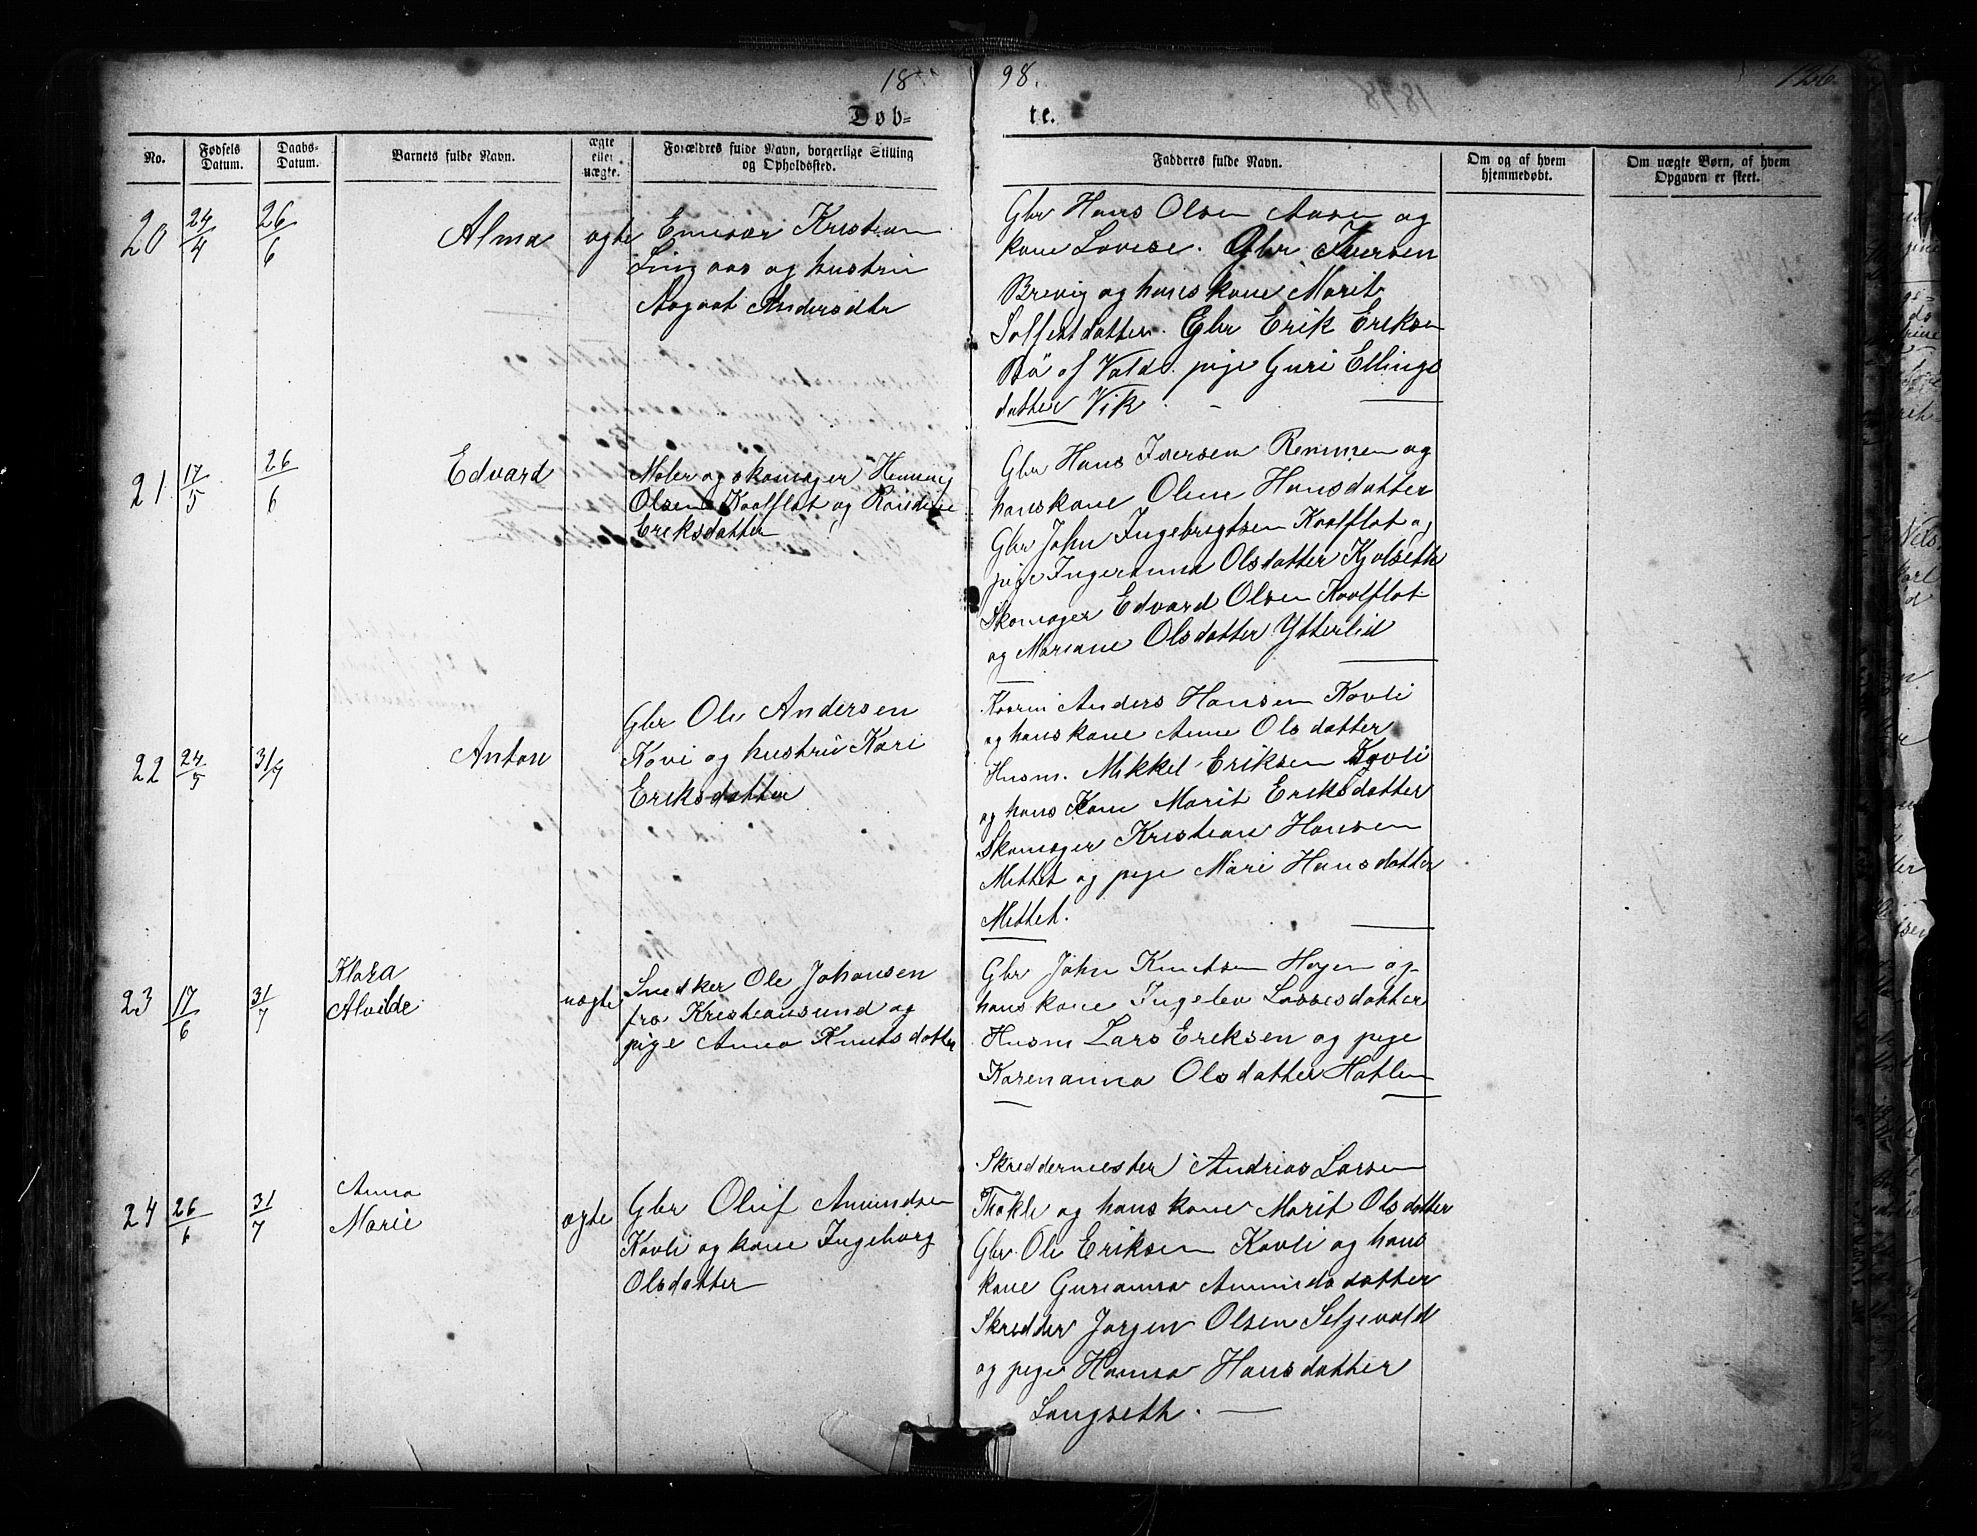 18 98.
126
Døb- te.
No.
Fødsels Datum.
Daabs- Datum.
Barnets fulde Navn.
ægte eller uægte.
Forældres fulde Navn, borgerlige Stilling og Opholdssted.
Fadderes fulde Navn.
Om og af hvem hjemmedøbt.
Om uægte Børn, af hvem Opgaven er skeet.
20 24/4 26/6 Alma ægte
Kristian
og hustru
Andersdtr
Gbr Hans Olsen Aasen og
kone Lovise. Gbr Iversen
Brevig og hans kone Marit
datter. Gbr Erik Eriksen
Bø af Vold. pige Guri Ellings
datter Vik.
21 17/5 26/6 Edvard
Maler og skomager Henning
Olsen Kaalflot og
Eriksdatter
Gbr Hans Iversen Remmen og
hans kone Oline Hansdatter
Gbr John Ingebrigtsen Kaalflot og
pige Ingeranna Olsdatter Kjølseth
Skomager Edvard Olsen Kaalflot
og Mariane Olsdatter Ytterlid
22 24/5 31/7 Anton
Gbr Ole Andersen
Kovi og hustru Kari
Eriksdatter
Anders Hansen Kavli
og hans kone Anne Olsdatter
Husm. Mikkel Eriksen Kavli
og hans Kone Marit Eriksdatter
Skomager Kristian Hansen
Mittet og pige Mari Hansdatter
Mittet.
23 17/6 31/7 Klara
Alvilde uægte
Snedker Ole Johansen
fra Kristiansund og
pige Anna Knutsdatter
Gbr John Knutsen Hagen og
hans kone Ingelev Lassesdatter
Husm Lars Eriksen og pige
Karenanna Olsdatter Hatlen
24 26/6 31/7 Anna
Marie ægte
Gbr Oluf Amundsen
Kavli og kone Ingeborg
Olsdatter
Skreddermester Andrias Larsen
og hans kone Marit Olsdatter
Gbr. Ole Eriksen Kavli og hans
kone Gurianna Amundsdatter
Skredder Jørgen Olsen Seljevold
og pige Hanna Hansdatter
Langseth.